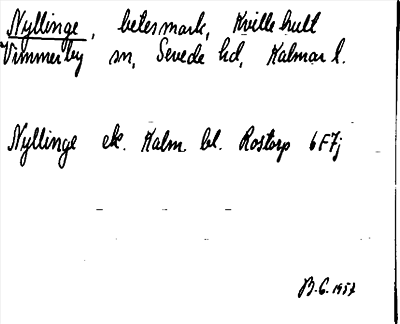 Nyllinge, betesmark, Kvillehult
Vimmerby sn, Sevede hd, Kalmar l.
Nyllinge ek. Kalm. bl. Rostorp 6F7j
B.G. 1957